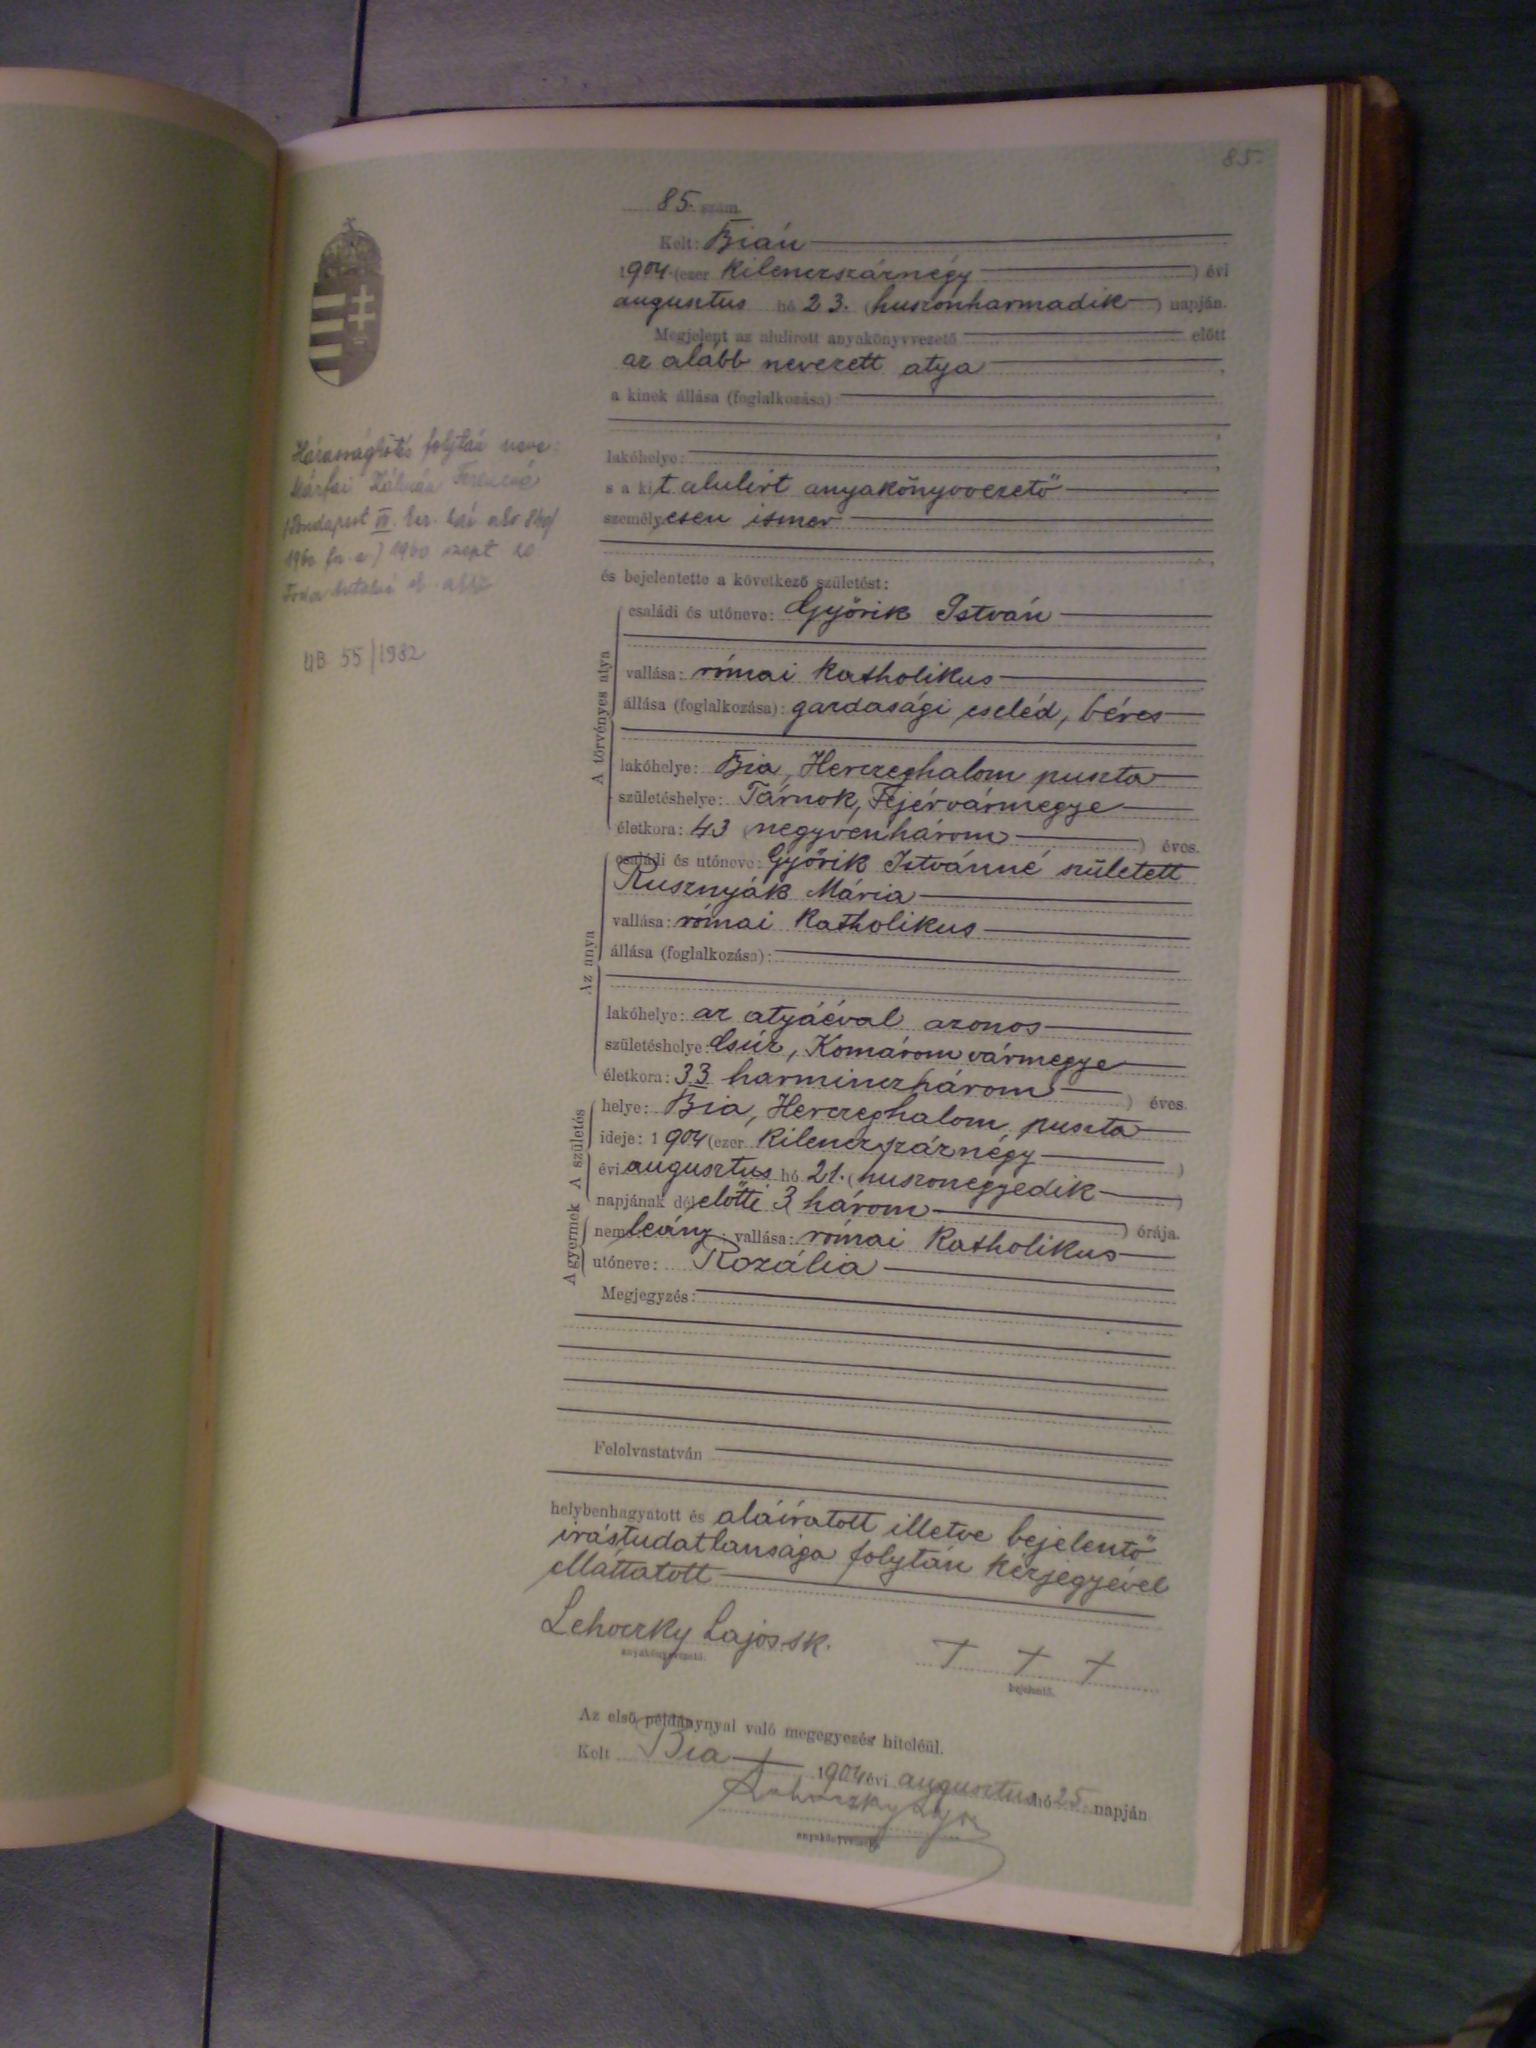 85.
85. szám
Kelt: Bián
1904 (ezer kilenczszáznégy) évi
augusztus hó 23. (huszonharmadik) napján.
Megjelent az alulirott anyakönyvvezető előtt
az alább nevezett atya
a kinek állása (foglalkozása):
lakóhelye:
s a kit alulírt anyakönyvvezető
személyesen ismer
és bejelentette a következő születést:
A törvényes atya
családi és utóneve: Győrik István
vallása: római katholikus
állása (foglalkozása): gazdasági cseléd, béres
lakóhelye: Bia, Herczeghalom puszta
születéshelye: Tárnok, Fejérvármegye
életkora: 43 (negyvenhárom) éves.
Az anya
családi és utóneve: Győrik Istvánné született
Rusznyák Mária
vallása: római katholikus
állása (foglalkozása):
lakóhelye: az atyáéval azonos
születéshelye: Csúz, Komárom vármegye
életkora: 33 harminczhárom) éves.
A születés
helye: Bia, Herczeghalom puszta
ideje: 1904 (ezer kilenczszáznégy)
évi augusztus hó 21. (huszonegyedik)
napjának délelőtti 3 (három) órája.
A gyermek
neme: leány; vallása: római katholikus
utóneve: Rozália
Megjegyzés:
Felolvastatván
helybenhagyatott és aláíratott illetve bejelentő
írástudatlansága folytán kézjegyével
elláttatott
Lehoczky Lajos sk.
anyakönyvvezető.
+ + +
bejelentő.
Az első példánynyal való megegyezés hiteléül.
Kelt Bia 1904 évi augusztus hó 25 napján
Lehoczky Lajos
anyakönyvvezető.
Házasságkötés folytán neve:
Márfai Kálmán Ferencné
1960 szept 20
UB 55/1982